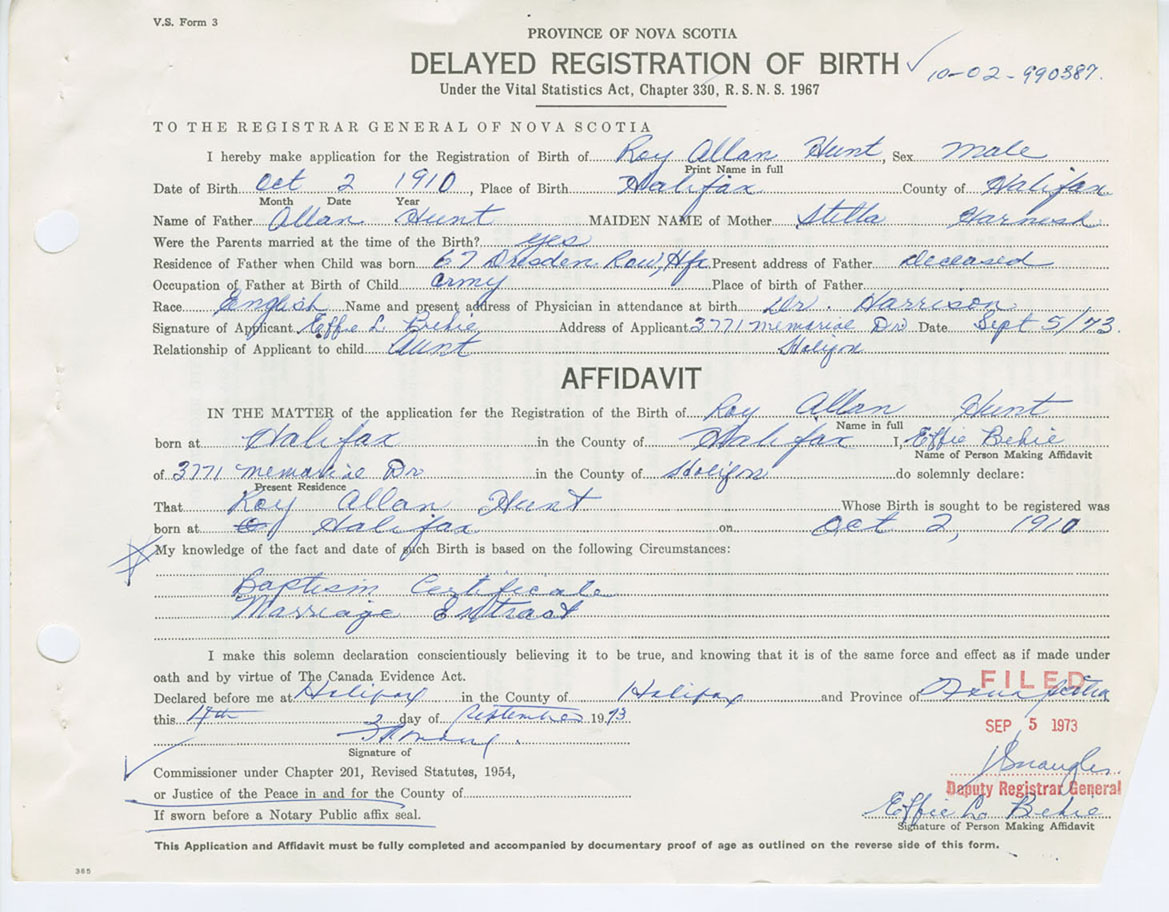 V.S. Form 3
PROVINCE OF NOVA SCOTIA
DELAYED REGISTRATION OF BIRTH 10-02-990387.
Under the Vital Statistics Act, Chapter 330, R.S.N.S. 1967
TO THE REGISTRAR GENERAL OF NOVA SCOTIA
I hereby make application for the Registration of Birth of Roy Allan Hunt, Sex Male
Print Name in full
Date of Birth Oct 2 1910, Place of Birth Halifax County of Halifax
Month Date Year
Name of Father Allan Hunt MAIDEN NAME of Mother Stella Harnish
Were the Parents married at the time of the Birth? yes
Residence of Father when Child was born 67 Dresden Row, Hfx Present address of Father deceased
Occupation of Father at Birth of Child army Place of birth of Father
Race English Name and present address of Physician in attendance at birth Dr. Harrison
Signature of Applicant Effie L Behie Address of Applicant 3771 Memorial Dr Date Sept 5/73.
Relationship of Applicant to child Aunt Halifax
AFFIDAVIT
IN THE MATTER of the application for the Registration of the Birth of Roy Allan Hunt
Name in full
born at Halifax in the County of Halifax I, Effie Behie
Name of Person Making Affidavit
of 3771 Memorial Dr in the County of Halifax do solemnly declare:
Present Residence
That Roy Allan Hunt Whose Birth is sought to be registered was
born at Halifax on Oct 2, 1910
My knowledge of the fact and date of such Birth is based on the following Circumstances:
Baptism Certificate
Marriage Extract
I make this solemn declaration conscientiously believing it to be true, and knowing that it is of the same force and effect as if made under
oath and by virtue of The Canada Evidence Act.
FILED
Declared before me at Halifax in the County of Halifax and Province of Nova Scotia
this 4th day of September 1973
SEP 5 1973
Signature of
Commissioner under Chapter 201, Revised Statutes, 1954,
Deputy Registrar General
or Justice of the Peace in and for the County of
Effie L. Behie
If sworn before a Notary Public affix seal.
Signature of Person Making Affidavit
This Application and Affidavit must be fully completed and accompanied by documentary proof of age as outlined on the reverse side of this form.
385